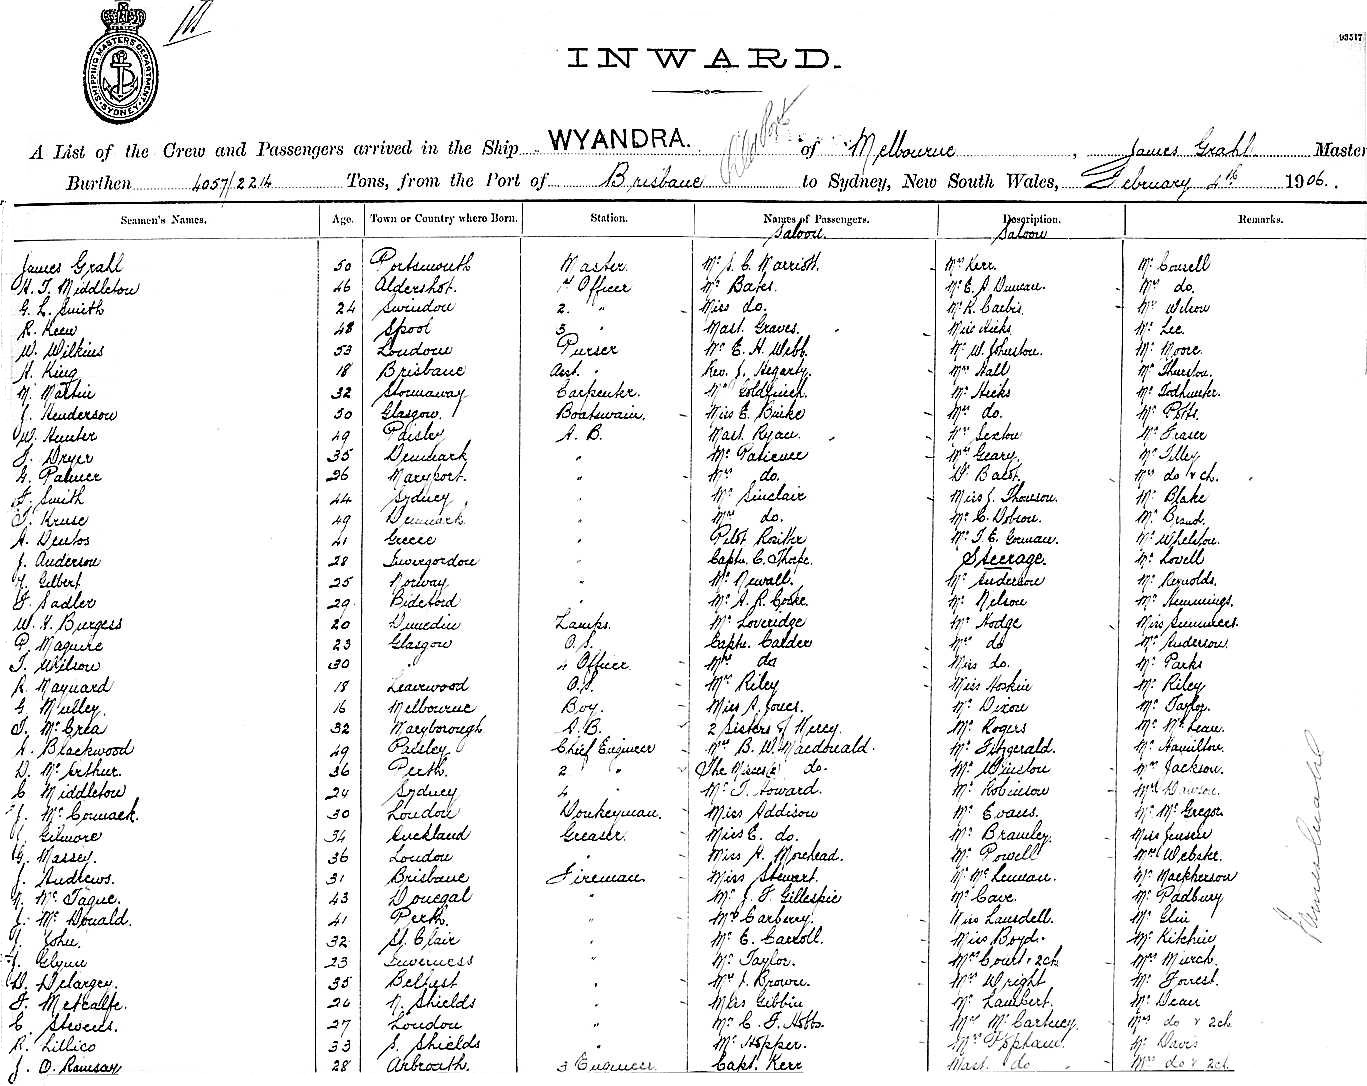 93517
SHIPPING MASTERS DEPARTMENT
SYDNEY
INWARD.
A List of the Crew and Passengers arrived in the Ship WYANDRA. of Melbourne, James Grahl Master
Burthen 4057/2214 Tons, from the Port of Brisbane to Sydney, New South Wales, February 4th 1906.
Seamen's Names. Age. Town or Country where Born. Station. Names of Passengers. Description. Remarks.
Saloon. Saloon
James Grahl 50 Portsmouth Master. Mr Marriott. Mrs Kerr. Mr Counsell
Middleton 46 Aldershot. 1st Officer Mr Bates. Mr E. A Duncan. Mrs do.
G. L. Smith 24 Swindon 2. " Miss do. Mr R. Mr Wilson
R. Keen 48 3 " Mast. Graves. Miss Hicks Mr Lee.
W. Wilkins 53 London Purser Mr E. H. Webb. Mr W. Johnston. Mr Moore.
H. King 18 Brisbane Asst. " Rev. J. Hegarty. Mrs Hall Mr Thurston.
Martin 32 Stornaway Carpenter. Goldfinch. Mr Hicks Mr Todhunter.
J. Henderson 50 Glasgow. Boatswain. Miss E. Birke Mrs do. Mr Potts.
W. Hunter 49 Paisley A. B. Mast. Ryan. Mr Sexton Mr Fraser
J. Dryer 35 Denmark " Mr Patience Mrs Geary. Mr Tilley
G. Palmer 26 Maryport. " Mrs do. Mrs do & ch.
F. Smith 44 Sydney " Mr Sinclair Miss J. Thomson. Mr Blake
T. Kruse 49 Denmark " Mrs do. Mr C. Dobson. Mr Brand.
A. Dentos 41 Greece " Pilot Mr T. E. Gorman. Mr Whelston.
J. Anderson 28 Invergordon " Captn. C. Thorpe. Steerage. Mr Lovell
Gilbert 25 Norway " Mr Newall. Mr Anderson Mr Reynolds.
F. Sadler 29 Bideford " Mr A. R. Cooke. Mr Nelson Mr Hemmings.
W. H. Burgess 20 Dunedin Lamps. Mr Loveridge Mr Hodge Miss Summers.
P. Maguire 23 Glasgow O.S. Captn. Calder Mrs do Mr Anderson.
T. Wilson 30 " 4 Officer Mrs do Miss do. Mr Parks
R. Maynard 18 O.S. Mrs Riley Miss Hoskin Mr Riley
G. Mulley. 16 Melbourne Boy. Miss A. Jones. Mr Dixon Mr Taylor.
T. McCrea 32 Maryborough A.B. 2 Sisters of Mercy. Mr Rogers Mr McLean.
A. Blackwood 49 Paisley Chief Engineer Mrs B. W. Macdonald. Mr Fitzgerald. Mr Hamilton.
D. McArthur. 36 Perth. 2 " The Misses (2) do. Mr Winston Mrs Jackson.
C Middleton 24 Sydney 4 " Mr T. Howard. Mr Robinson Mrs Dawson.
J. McCormack. 30 London Donkeyman. Miss Addison Mr Evans. Mr McGregor
Gilmore 34 Auckland Greaser. Miss E. do. Mr Bramley. Miss Jensen
G. Massey. 36 London " Miss H. Morehead. Mr Powell Mrs Webske.
J. Andrews. 31 Brisbane Fireman. Miss Stewart. Mr McLennan. Mr Mackherson
McTague. 43 Donegal " Mr J. F. Gillespie Mr Cave. Mr Padbury
J. McDonald. 41 Perth. " Mrs Carberry. Miss Lansdell. Mr Glin
John. 32 St. Clair " Mr E. Carroll. Miss Boyd. Mr Kitchin
J. Glynn 23 Inverness " Mr Taylor. Mrs Court & 2ch. Mrs Murch.
D. Delargey. 35 Belfast " Mr J. Brown. Mrs Wright Mr Forrest.
F. Metcalfe. 26 N. Shields " Miss Gibbin Mr Lambert. Mr Dean
C. Stevens. 27 London " Mr C. F. Hobbs. Mrs McCartney. Mrs do & 2ch.
R. Lillico 33 S. Shields " Mr Hopper. Mrs Mr Davis
J. O. Ramsay 28 Arbroath 3 Engineer. Capt. Kerr Mast. do Mrs do & 2ch.